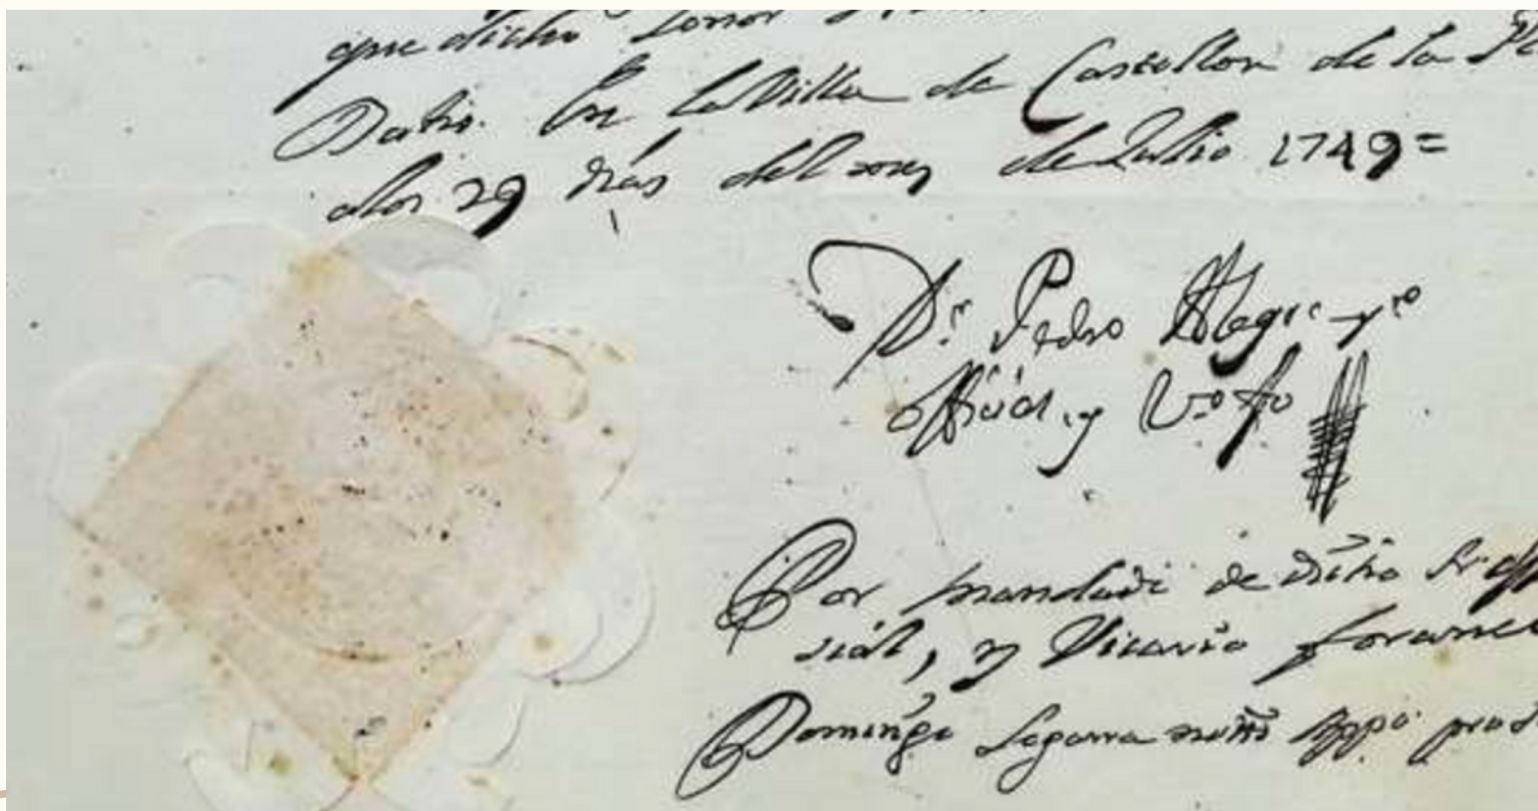 que dicho señor
Datis. En la Villa de Castellon de la
alos 29 dias del mes de Julio 1749=
Dr. Pedro Alegre y
Official. y Vro fo
Por mandado de dicho Sr. offi
cial, y Vicario foraneo
Domingo Segarra nottº appº